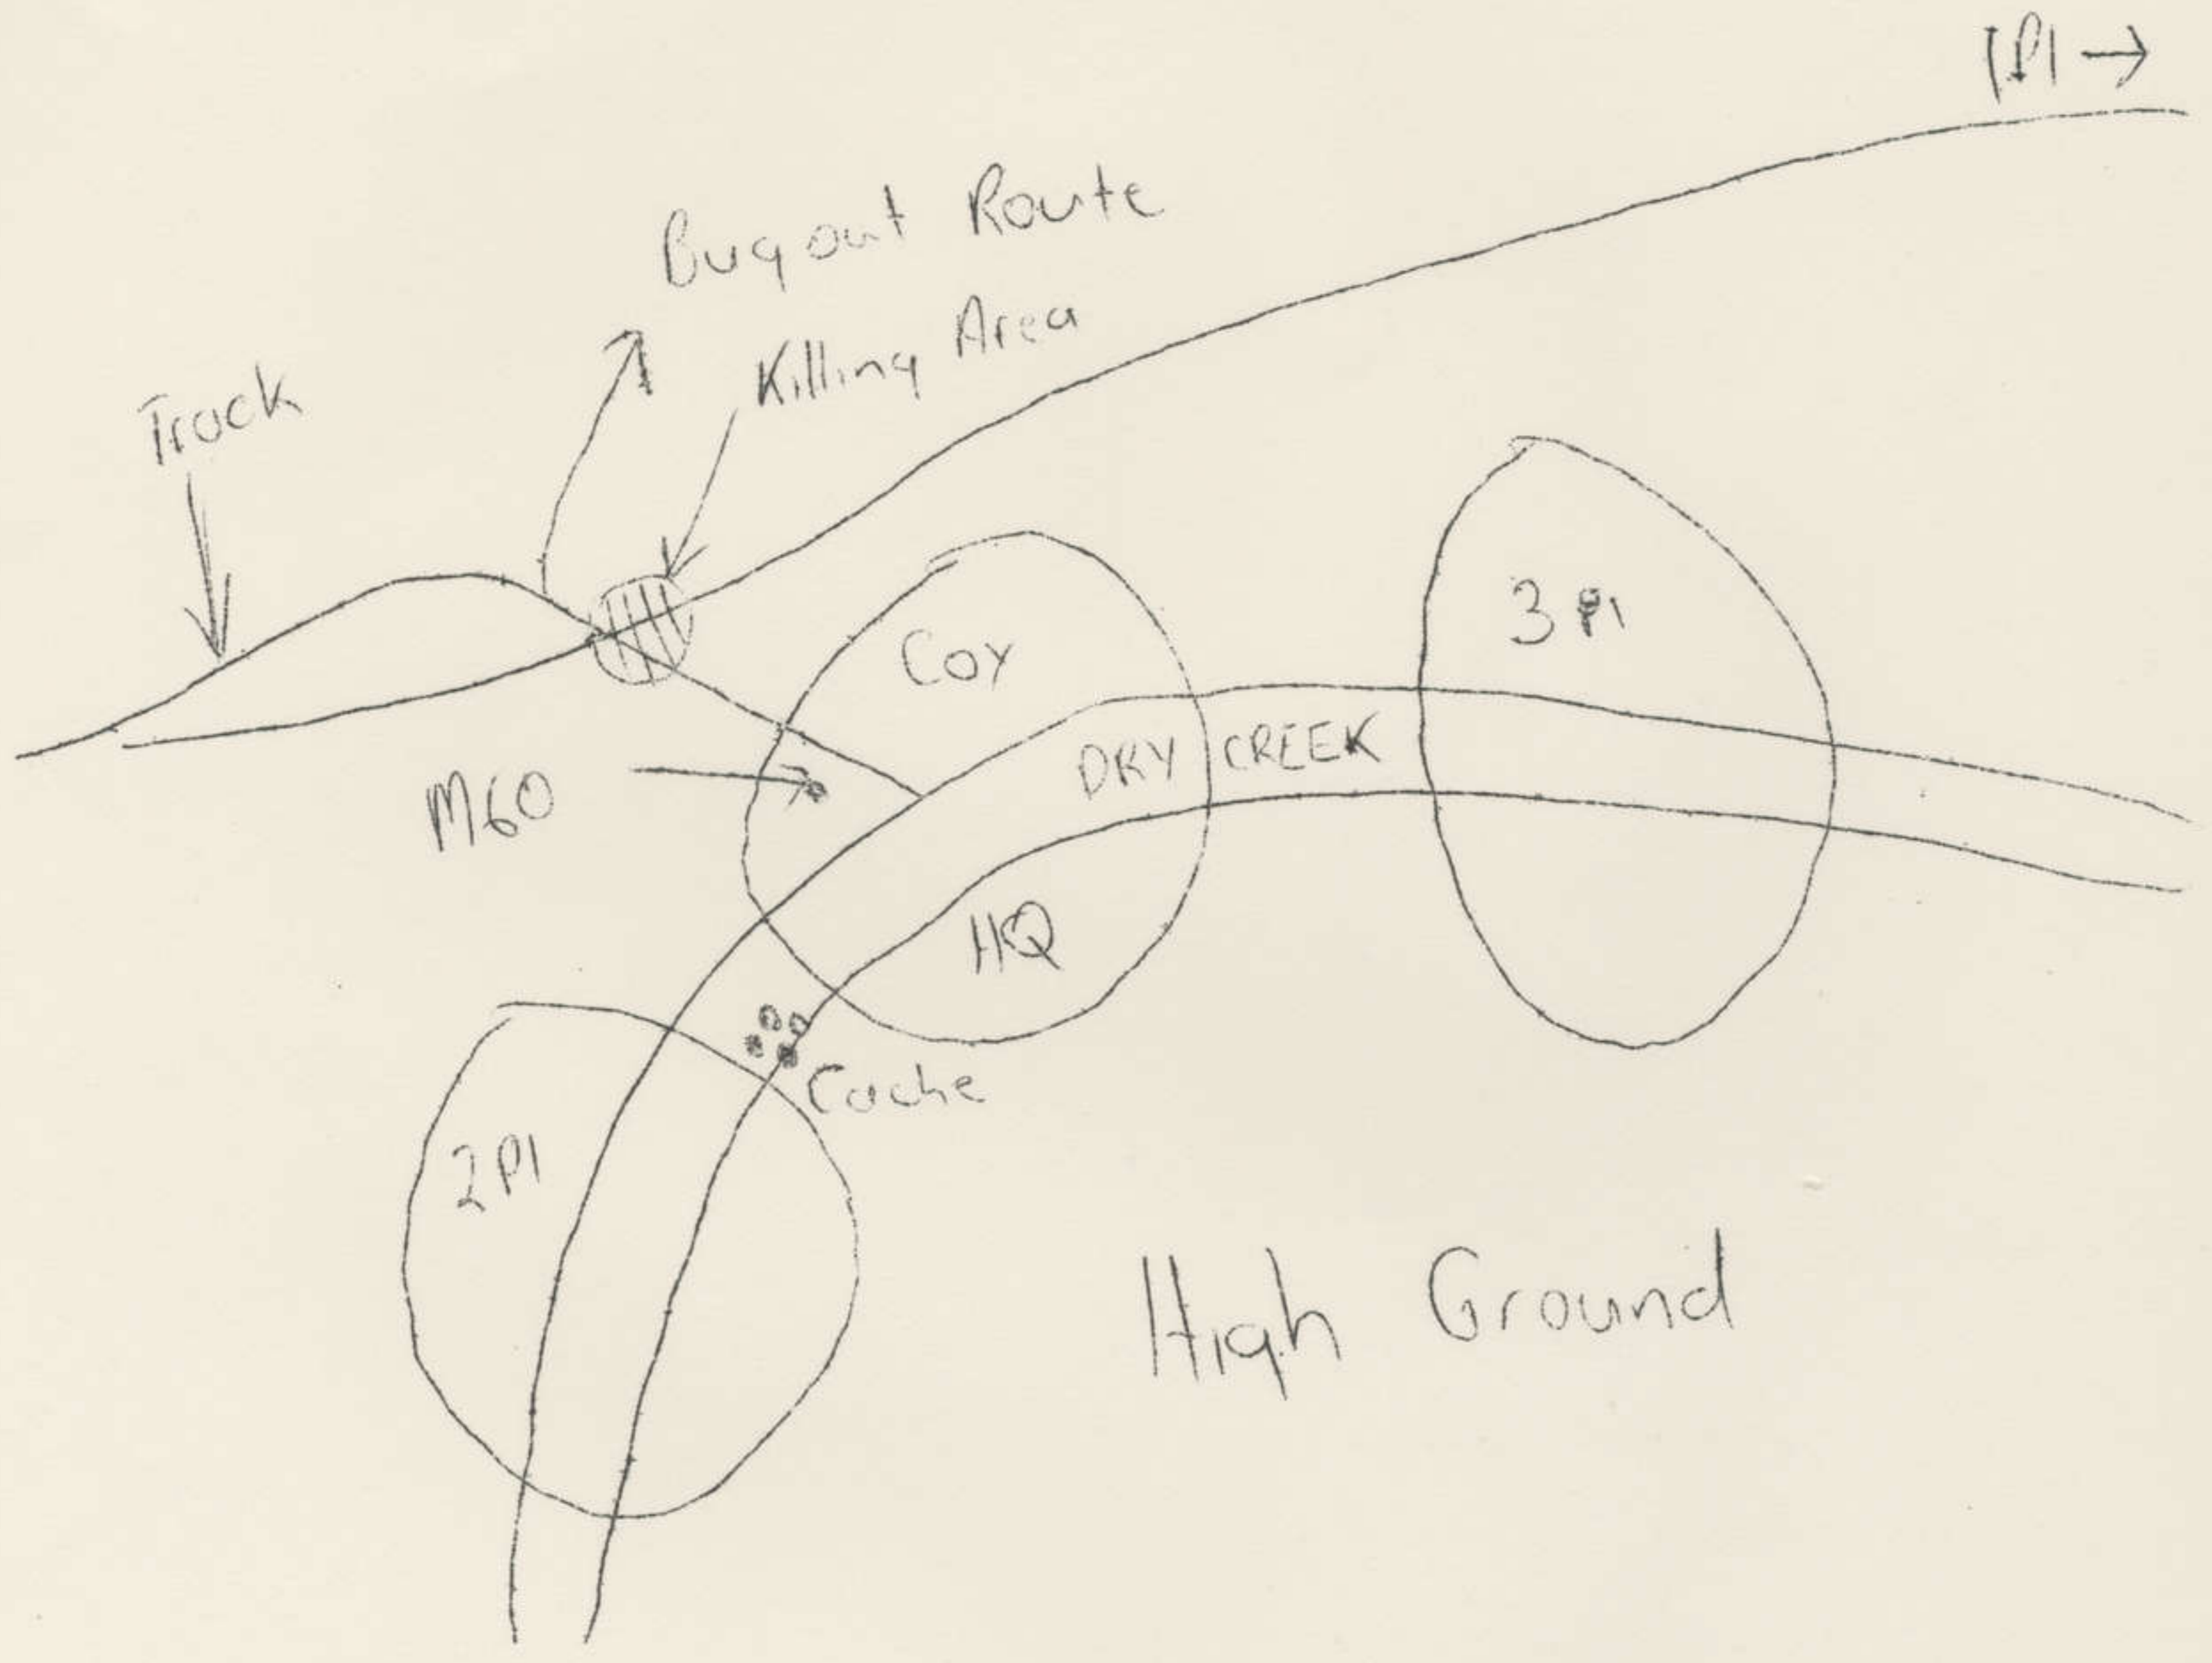 1Pl →
Bugout Route
Killing Area
Track
Coy
3 Pl
DRY CREEK
M60
HQ
Cache
2Pl
High Ground